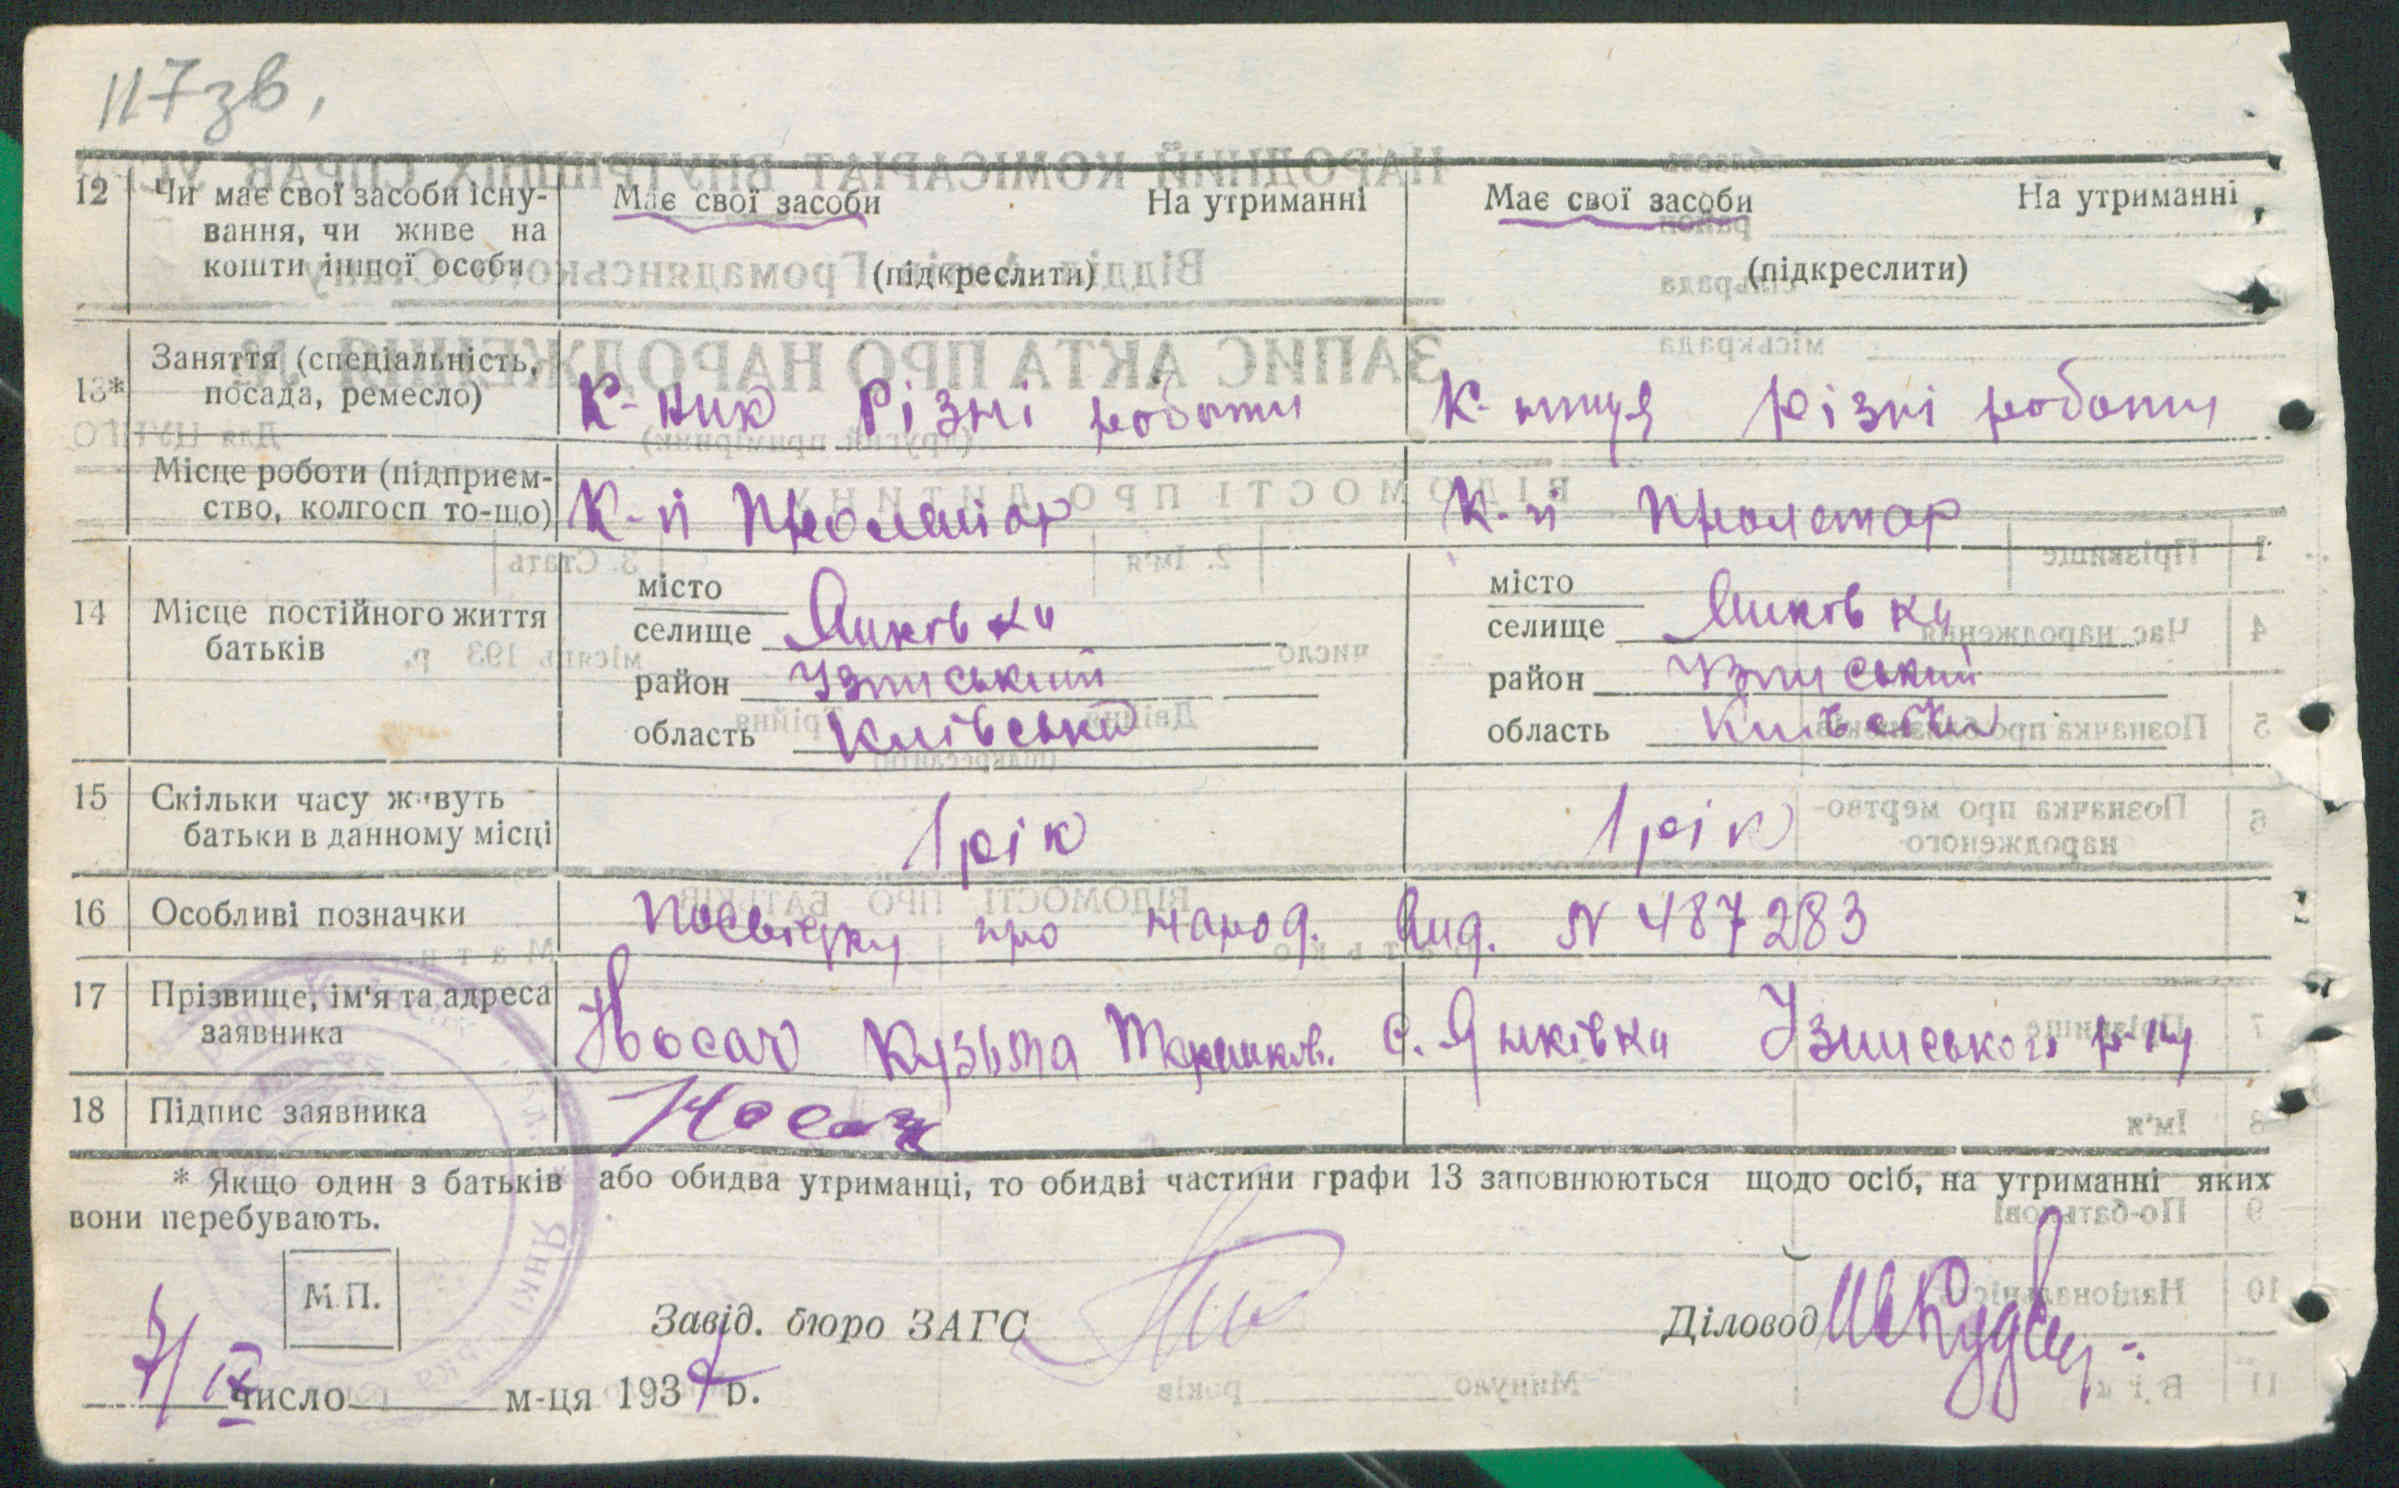 117зв.
12 Чи має свої засоби існу- Має свої засоби На утриманні Має свої засоби На утриманні
вання, чи живе на
кошти іншої особи (підкреслити) (підкреслити)
Заняття (спеціальність,
13* посада, ремесло) К-ник Різні роботи К-ниця різні роботи
Місце роботи (підприєм-
ство, колгосп то-що) К-п Пролетар К-п Пролетар
місто місто
14 Місце постійного життя селище Янківка селище Янківка
батьків район Узинський район Узинський
область Київська область Київська
15 Скільки часу живуть
батьки в данному місці 1 рік 1 рік
16 Особливі позначки Посвідку про народ. Вид. N 487283
17 Прізвище, ім'я та адреса
заявника Носач Кузьма с. Янківка Узинського р-ну
18 Підпис заявника Носач
* Якщо один з батьків або обидва утриманці, то обидві частини графи 13 заповнюються щодо осіб, на утриманні яких
вони перебувають.
М.П.
Завід. бюро ЗАГС Діловод
число м-ця 1937 р.